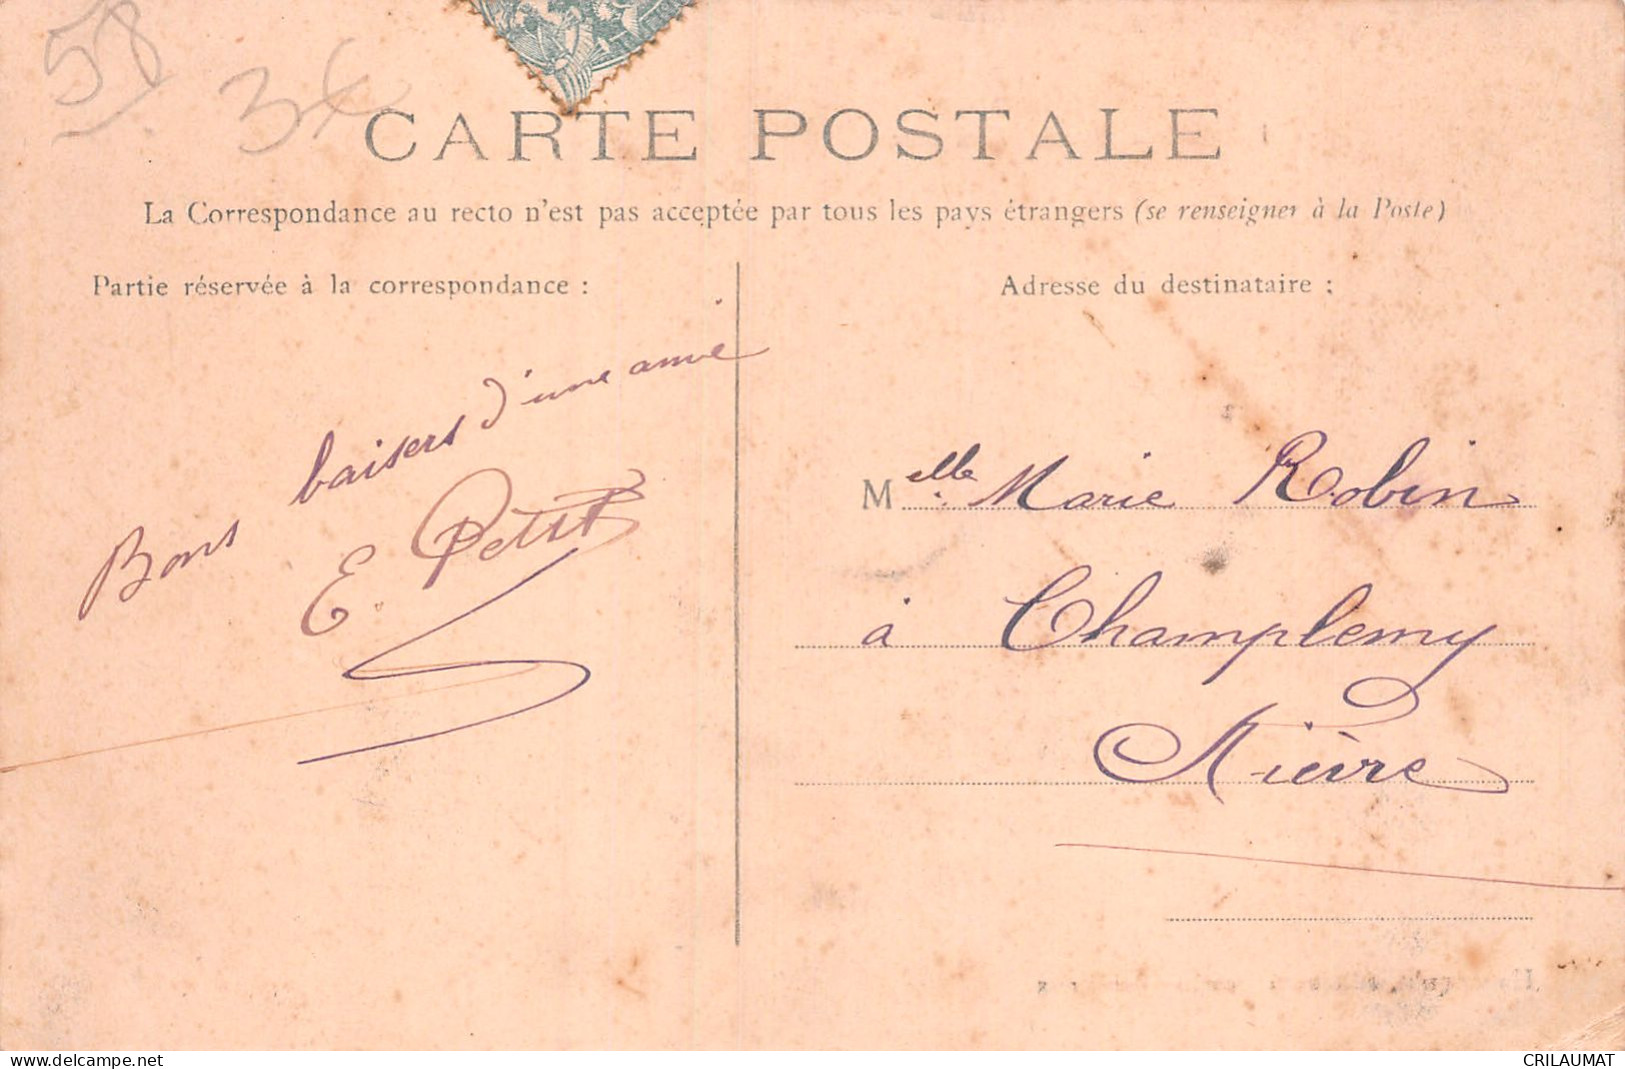 58
34
CARTE POSTALE
La Correspondance au recto n'est pas acceptée par tous les pays étrangers (se renseigner à la Poste)
Partie réservée à la correspondance :
Adresse du destinataire :
Bons baisers d'une amie
E. Petit
Melle Marie Robin
à Champlemy
Nièvre
www.delcampe.net
CRILAUMAT